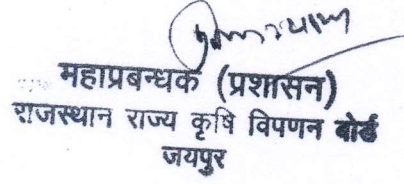 महाप्रबन्धक (प्रशासन)
राजस्थान राज्य कृषि विपणन बोर्ड
जयपुर